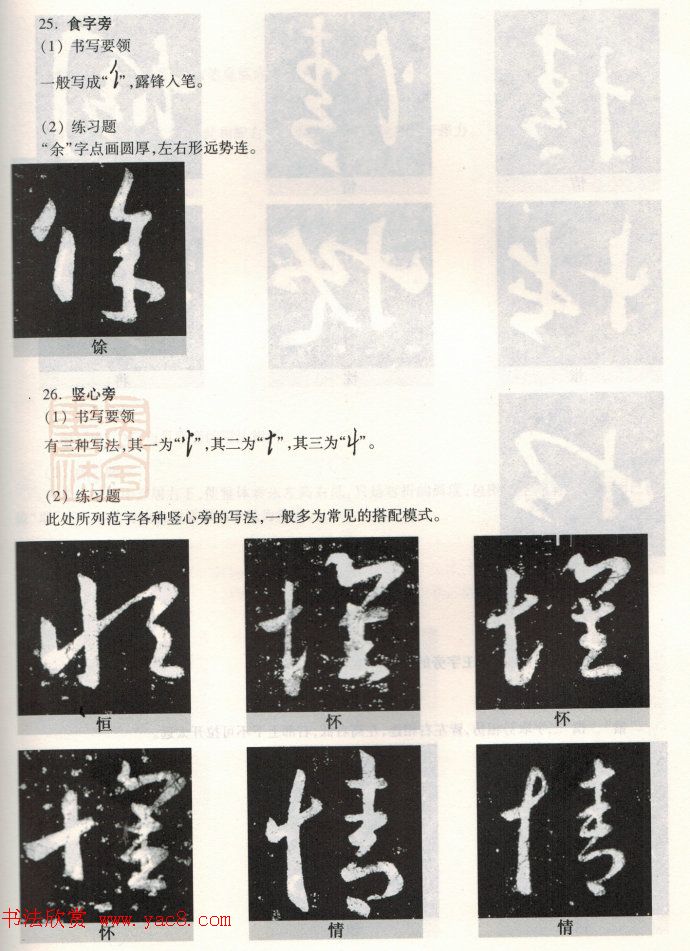 25. 食字旁
(1) 书写要领
一般写成“亻”,露锋入笔。
(2) 练习题
“余”字点画圆厚,左右形远势连。
馀
26. 竖心旁
(1) 书写要领
有三种写法,其一为“”,其二为“”,其三为“”。
(2) 练习题
此处所列范字各种竖心旁的写法,一般多为常见的搭配模式。
恒 怀 怀
怀 情 情
书法欣赏 www.yac8.com